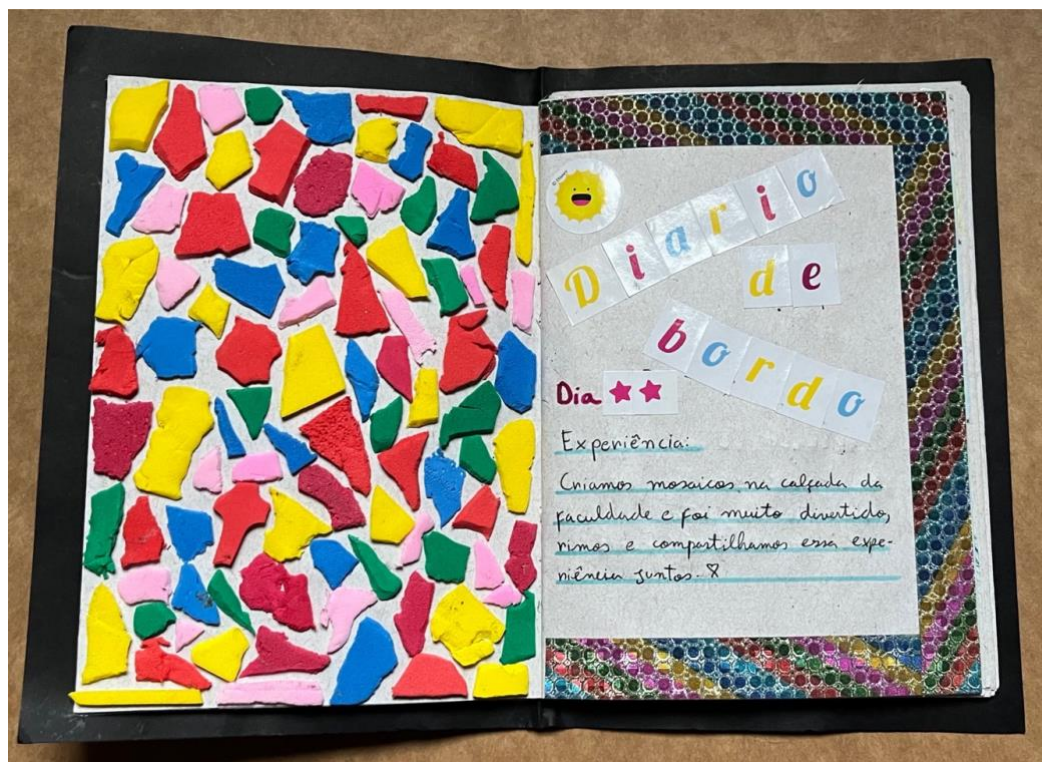 Diario
de
bordo
Dia ★★
Experiência:
Criamos mosaicos na calçada da
faculdade e foi muito divertido,
rimos e compartilhamos essa expe-
riência juntas. ♡